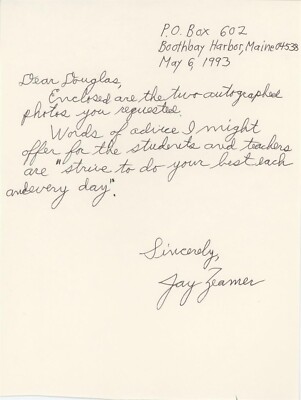 P.O. Box 602
Boothbay Harbor, Maine 04538
May 6, 1993
Dear Douglas,
Enclosed are the two autographed
photos you requested.
Words of advice I might
offer for the students and teachers
are "strive to do your best each
and every day".
Sincerely,
Jay Zeamer